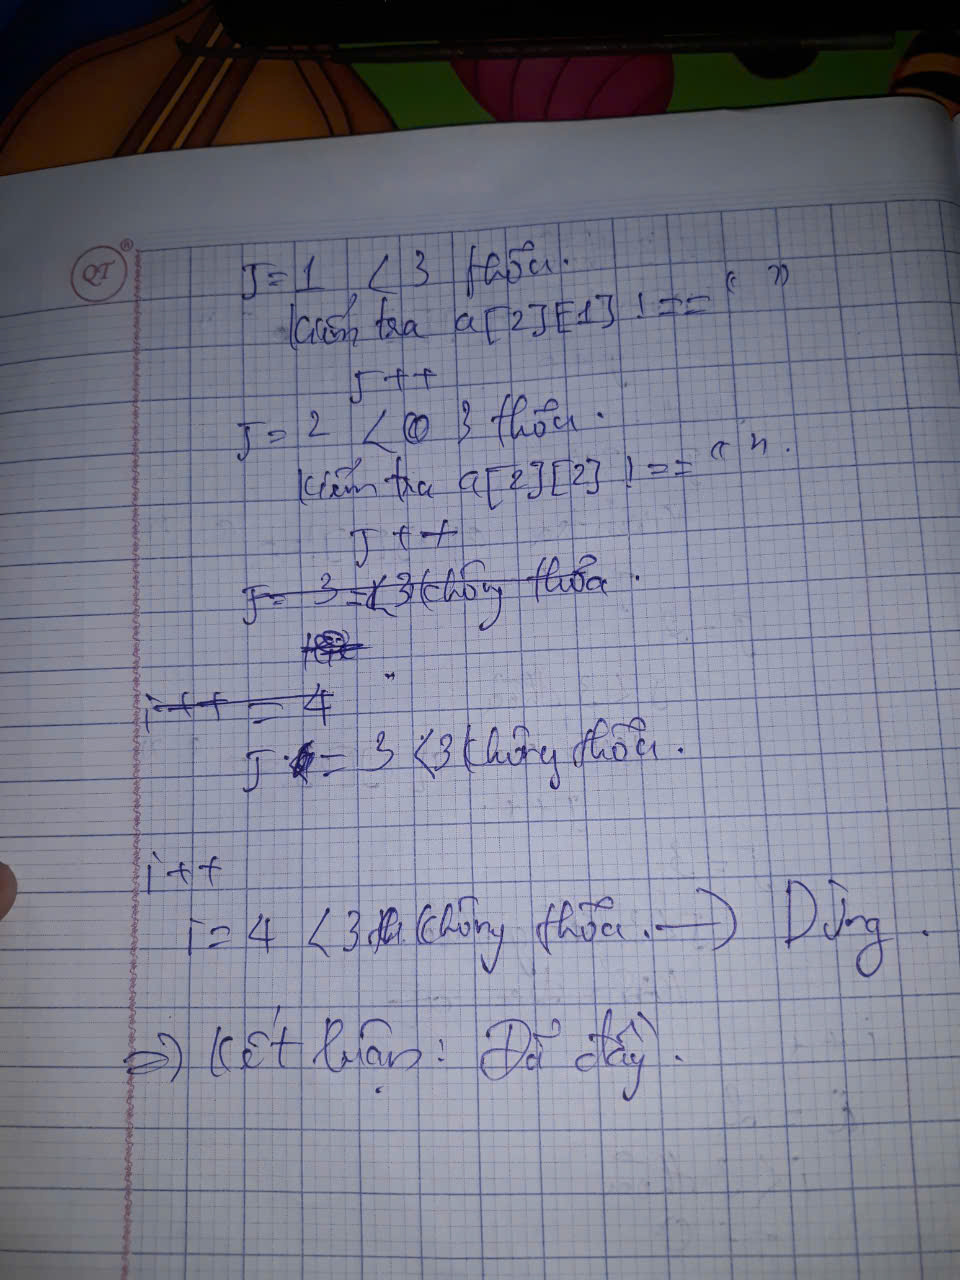 QT®
J = 1 < 3 thõa.
Kiểm tra a[2][1] !== " "
J++
J = 2 < 3 thõa.
Kiểm tra a[2][2] !== " ".
J++
J = 3 = < 3 không thõa.
i++ = 4
J = 3 < 3 không thõa.
i++
i = 4 < 3 không thõa. → Dừng.
=> Kết luận: Đã đầy.